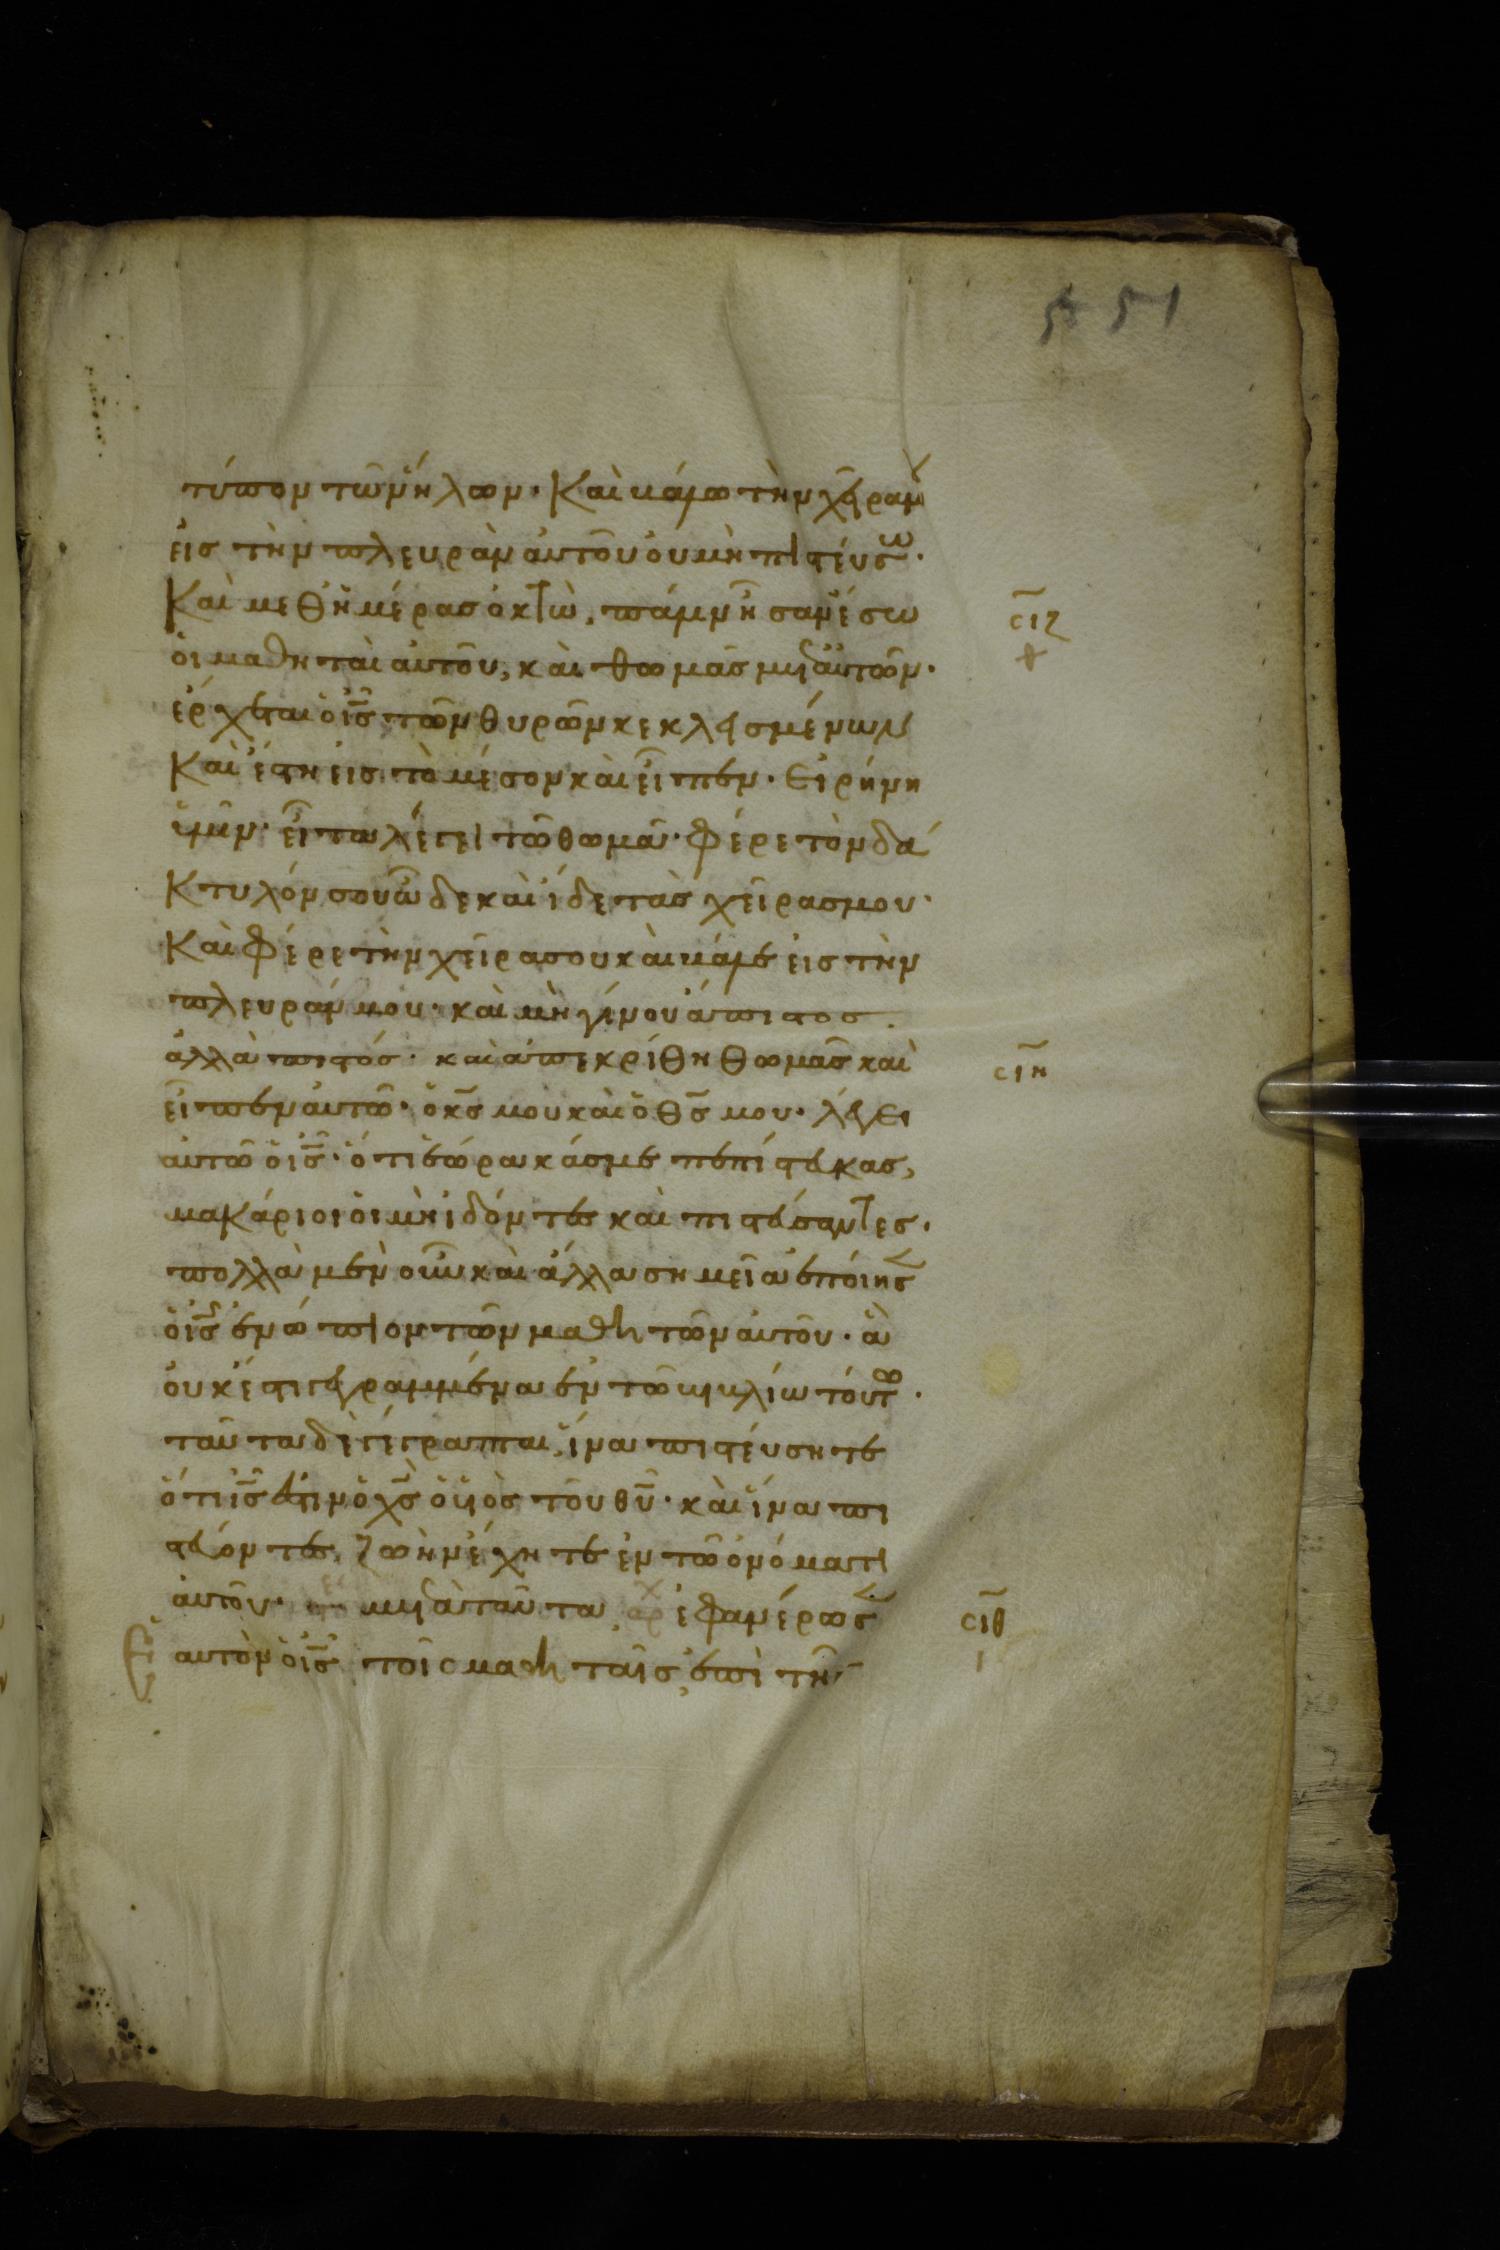 51
τύπον τῶν ἥλων· Καὶ βάλω τὴν χεῖραν
εἰς τὴν πλευρὰν αὐτοῦ οὐ μὴ πιστεύσω·
Καὶ μεθ ἡμέρας ὀκτὼ, πάλιν ἦσαν ἔσω
οἱ μαθηταὶ αὐτοῦ, καὶ θωμᾶς μετ αὐτῶν·
ἔρχεται ὁ ις τῶν θυρῶν κεκλεισμένων
Καὶ ἔστη εἰς τὸ μέσον καὶ εἶπεν· Εἰρήνη
ὑμῖν· εἶτα λέγει τῶ θωμᾶ· Φέρε τὸν δά
Κτυλόν σου ὧδε καὶ ἴδε τὰς χεῖρας μου·
Καὶ Φέρε τὴν χεῖρα σου καὶ βάλε εἰς τὴν
πλευράν μου· καὶ μὴ γίνου ἄπιστος·
ἀλλὰ πιστός· καὶ ἀπεκρίθη θωμᾶς καὶ
εἶπεν αὐτῶ· ὁ κς μου καὶ ὁ θς μου· λέγει
αὐτῶ ὁ ις· ὅτι ἑώρακάς με πεπίστευκας,
μακάριοι οἱ μὴ ἰδόντες καὶ πιστεύσαντες·
πολλὰ μὲν οὖν καὶ ἄλλα σημεῖα ἐποίησ
ὁ ις ἐνώπιον τῶν μαθητῶν αὐτοῦ· ἃ
οὐκ ἔστι γεγραμμένα ἐν τῶ βιβλίω τούτω·
ταῦτα δὲ γέγραπται, ἵνα πιστεύσητε
ὅτι ις ἐστιν ὁ χς ὁ υἱὸς τοῦ θυ· καὶ ἵνα πι
στεύοντες, ζωὴν ἔχητε ἐν τῶ ὀνόματι
αὐτοῦ· μετὰ ταῦτα ἐφανέρωσ
αὐτὸν ὁ ις τοῖς μαθηταῖς, ἐπὶ τῆς
σιζ
σιη
σιθ
ι